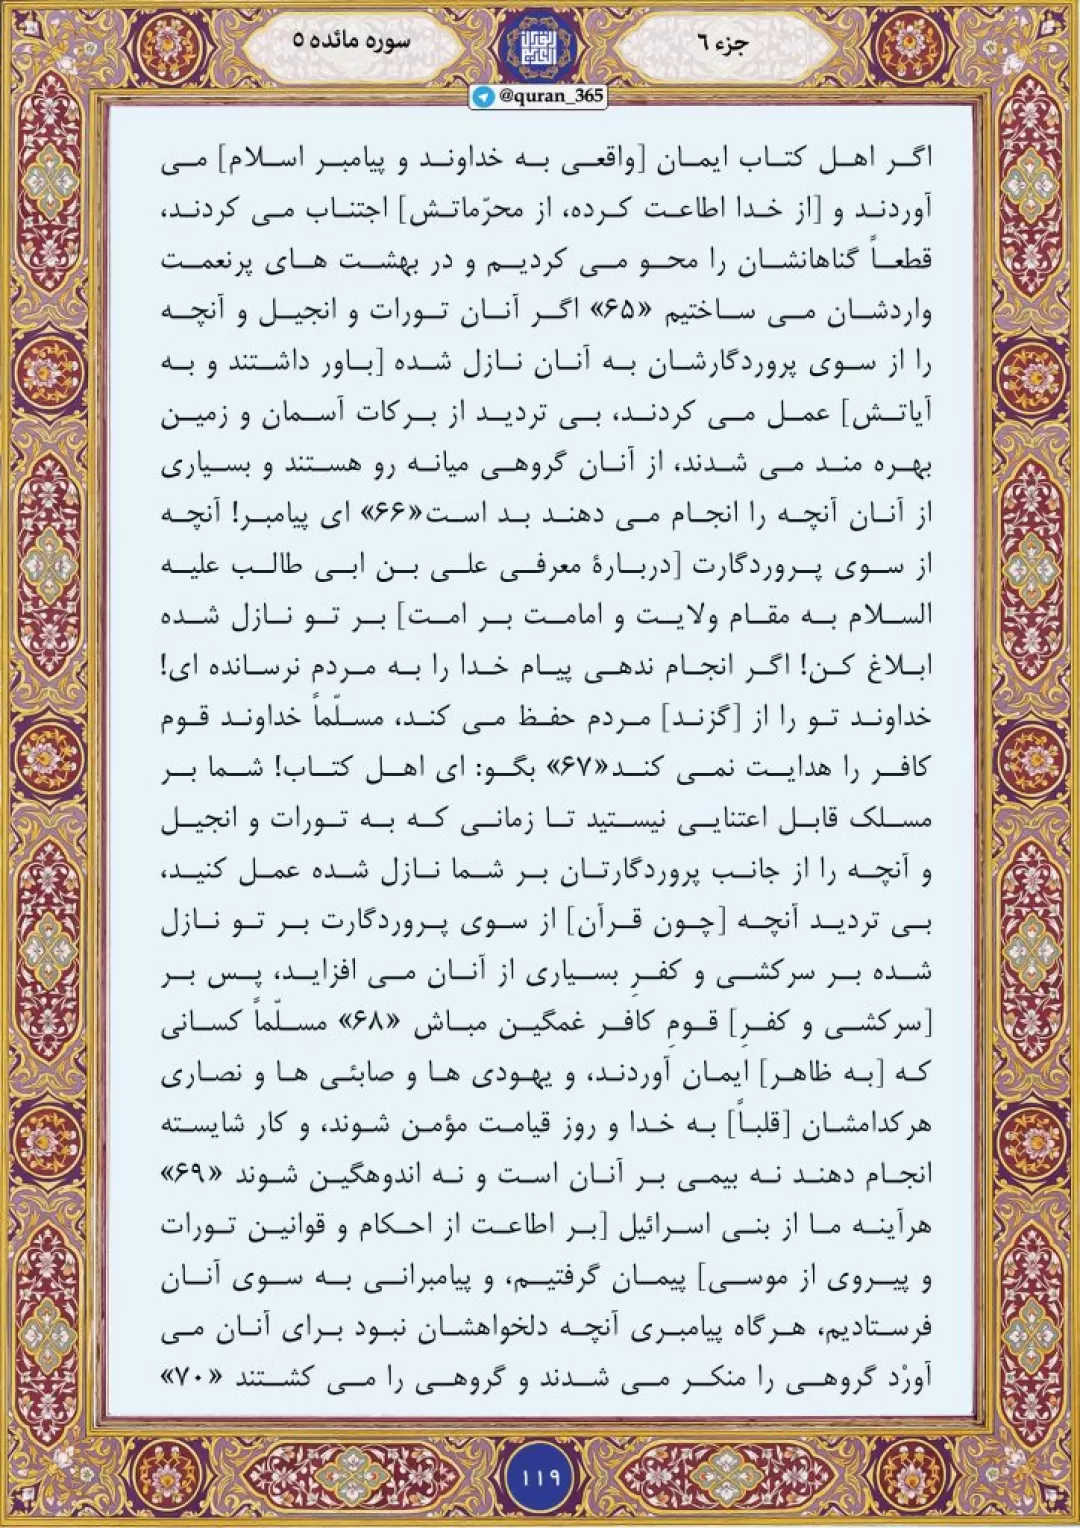 جزء ۶
سوره مائده ۵
@quran_365
اگر اهل کتاب ایمان [واقعی به خداوند و پیامبر اسلام] می
آوردند و [از خدا اطاعت کرده، از محرّماتش] اجتناب می کردند،
قطعاً گناهانشان را محو می کردیم و در بهشت های پرنعمت
واردشان می ساختیم «۶۵» اگر آنان تورات و انجیل و آنچه
را از سوی پروردگارشان به آنان نازل شده [باور داشتند و به
آیاتش] عمل می کردند، بی تردید از برکات آسمان و زمین
بهره مند می شدند، از آنان گروهی میانه رو هستند و بسیاری
از آنان آنچه را انجام می دهند بد است«۶۶» ای پیامبر! آنچه
از سوی پروردگارت [دربارۀ معرفی علی بن ابی طالب علیه
السلام به مقام ولایت و امامت بر امت] بر تو نازل شده
ابلاغ کن! اگر انجام ندهی پیام خدا را به مردم نرسانده ای!
خداوند تو را از [گزند] مردم حفظ می کند، مسلّماً خداوند قوم
کافر را هدایت نمی کند«۶۷» بگو: ای اهل کتاب! شما بر
مسلک قابل اعتنایی نیستید تا زمانی که به تورات و انجیل
و آنچه را از جانب پروردگارتان بر شما نازل شده عمل کنید،
بی تردید آنچه [چون قرآن] از سوی پروردگارت بر تو نازل
شده بر سرکشی و کفرِ بسیاری از آنان می افزاید، پس بر
[سرکشی و کفرِ] قومِ کافر غمگین مباش «۶۸» مسلّماً کسانی
که [به ظاهر] ایمان آوردند، و یهودی ها و صابئی ها و نصاری
هرکدامشان [قلباً] به خدا و روز قیامت مؤمن شوند، و کار شایسته
انجام دهند نه بیمی بر آنان است و نه اندوهگین شوند «۶۹»
هرآینه ما از بنی اسرائیل [بر اطاعت از احکام و قوانین تورات
و پیروی از موسی] پیمان گرفتیم، و پیامبرانی به سوی آنان
فرستادیم، هرگاه پیامبری آنچه دلخواهشان نبود برای آنان می
آورْد گروهی را منکر می شدند و گروهی را می کشتند «۷۰»
۱۱۹